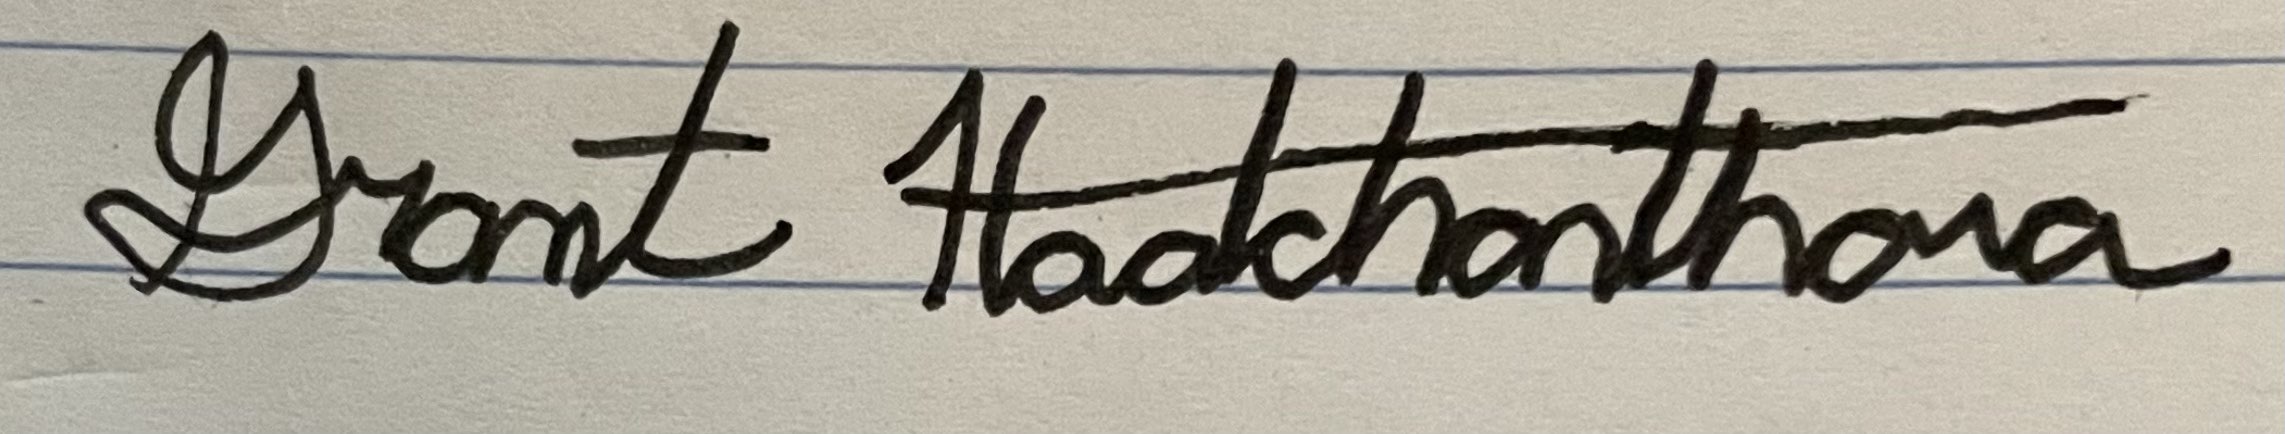 Grant Haatchanthara